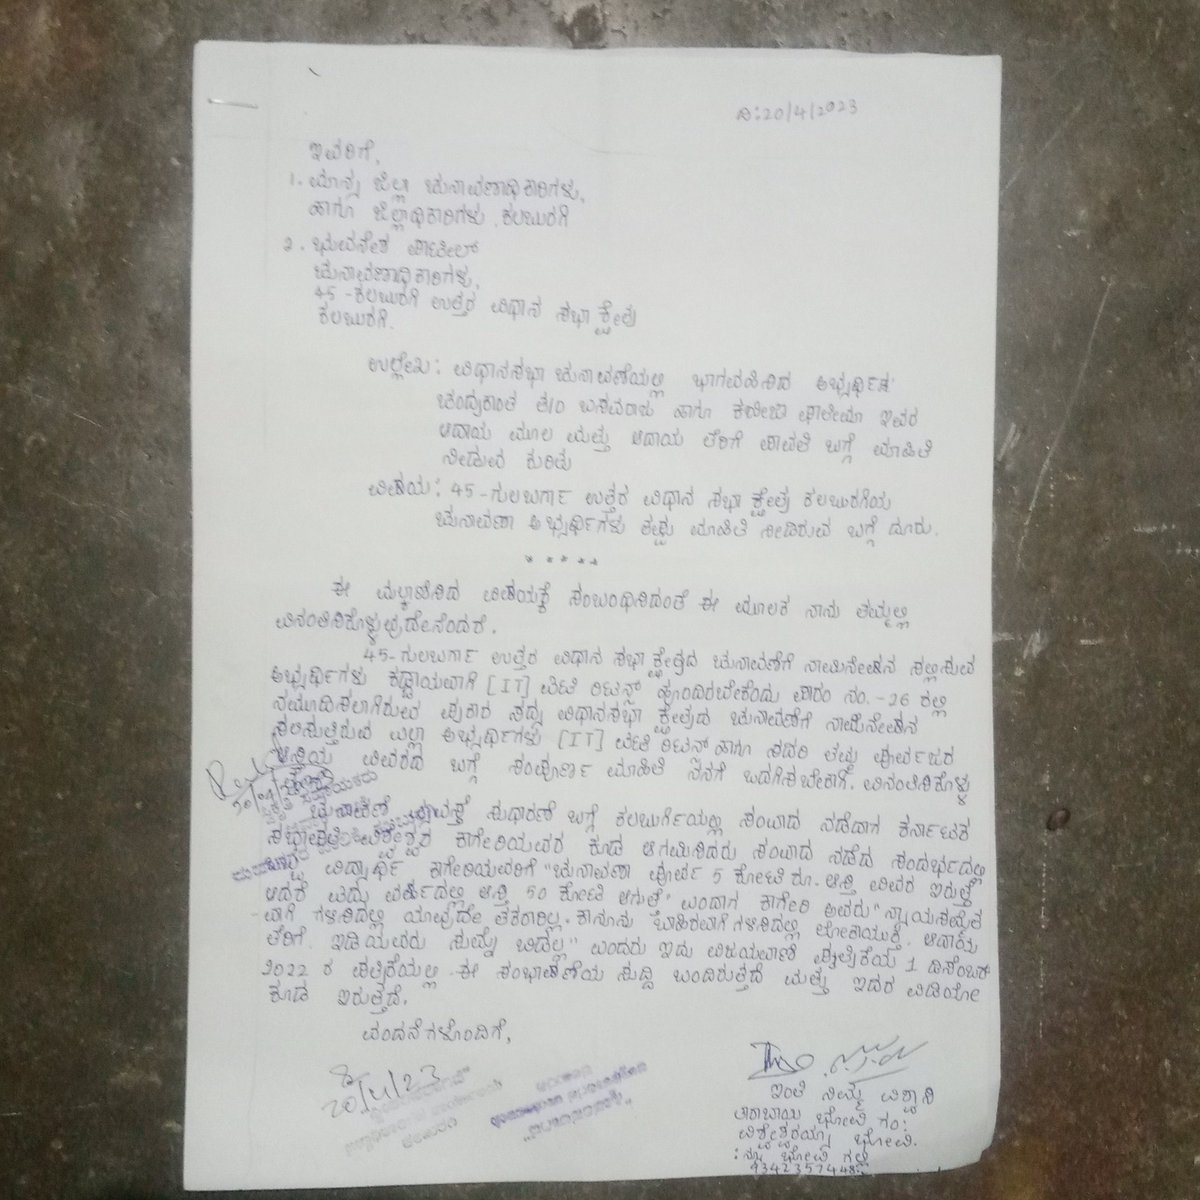 ದಿ:20/4/2023
ಇವರಿಗೆ,
1. ಮಾನ್ಯ ಜಿಲ್ಲಾ ಚುನಾವಣಾಧಿಕಾರಿಗಳು,
ಹಾಗೂ ಜಿಲ್ಲಾಧಿಕಾರಿಗಳು .ಕಲಬುರಗಿ
2. ಭುವನೇಶ ಪಾಟೀಲ್
ಚುನಾವಣಾಧಿಕಾರಿಗಳು,
45 -ಕಲಬುರಗಿ ಉತ್ತರ ವಿಧಾನ ಸಭಾ ಕ್ಷೇತ್ರ
ಕಲಬುರಗಿ.
ಉಲ್ಲೇಖ: ವಿಧಾನಸಭಾ ಚುನಾವಣೆಯಲ್ಲಿ ಭಾಗವಹಿಸಿದ ಅಭ್ಯರ್ಥಿಗಳ
ಚಂದ್ರಕಾಂತ ತಂ ಬಸವರಾಜ ಹಾಗೂ ಕನೀಜಾ ಫಾತೀಮಾ ಇವರ
ಆದಾಯ ಮೂಲ ಮತ್ತು ಆದಾಯ ತೆರಿಗೆ ಪಾವತಿ ಬಗ್ಗೆ ಮಾಹಿತಿ
ನೀಡುವ ಕುರಿತು
ವಿಷಯ: 45-ಗುಲಬರ್ಗಾ ಉತ್ತರ ವಿಧಾನ ಸಭಾ ಕ್ಷೇತ್ರ ಕಲಬುರಗಿಯ
ಚುನಾವಣಾ ಅಭ್ಯರ್ಥಿಗಳು ತಪ್ಪು ಮಾಹಿತಿ ನೀಡಿರುವ ಬಗ್ಗೆ ದೂರು.
* * * * *
ಈ ಮೇಲ್ಕಾಣಿಸಿದ ವಿಷಯಕ್ಕೆ ಸಂಬಂಧಿಸಿದಂತೆ ಈ ಮೂಲಕ ನಾನು ತಮ್ಮಲ್ಲಿ
ವಿನಂತಿಸಿಕೊಳ್ಳುವುದೇನೆಂದರೆ.
45-ಗುಲಬರ್ಗಾ ಉತ್ತರ ವಿಧಾನ ಸಭಾ ಕ್ಷೇತ್ರದ ಚುನಾವಣೆಗೆ ನಾಮಿನೇಷನ ಸಲ್ಲಿಸುವ
ಅಭ್ಯರ್ಥಿಗಳು ಕಡ್ಡಾಯವಾಗಿ [IT] ಐಟಿ ರಿಟರ್ನ್ಸ್ ಹೊಂದಿರಬೇಕೆಂದು ಫಾರಂ ನಂ.-26 ರಲ್ಲಿ
ನಮೂದಿಸಲಾಗಿರುವ ಪ್ರಕಾರ ಸದ್ರಿ ವಿಧಾನಸಭಾ ಕ್ಷೇತ್ರದ ಚುನಾವಣೆಗೆ ನಾಮಿನೇಷನ
ಸಲ್ಲಿಸುತ್ತಿರುವ ಎಲ್ಲಾ ಅಭ್ಯರ್ಥಿಗಳು [IT] ಐಟಿ ರಿಟರ್ನ್ ಹಾಗೂ ಸದರಿ ತಮ್ಮ ಪೂರ್ವಜರ
ಆಸ್ತಿಯ ವಿವರದ ಬಗ್ಗೆ ಸಂಪೂರ್ಣ ಮಾಹಿತಿ ನನಗೆ ಒದಗಿಸಬೇಕಾಗಿ. ವಿನಂತಿಸಿಕೊಳ್ಳು
ಚುನಾವಣೆ ವ್ಯವಸ್ಥೆ ಸುಧಾರಣೆ ಬಗ್ಗೆ ಕಲಬುರ್ಗಿಯಲ್ಲಿ ಸಂವಾದ ನಡೆದಾಗ ಕರ್ನಾಟಕ
ಸಭಾಪತಿ ವಿಶ್ವೇಶ್ವರ ಕಾಗೇರಿಯವರ ಕೂಡ ಆಗಮಿಸಿದರು ಸಂವಾದ ನಡೆದ ಸಂದರ್ಭದಲ್ಲಿ
ಒಬ್ಬ ವಿದ್ಯಾರ್ಥಿ ಕಾಗೇರಿಯವರಿಗೆ "ಚುನಾವಣಾ ಪೂರ್ವ 5 ಕೋಟಿ ರೂ. ಆಸ್ತಿ ವಿವರ ಇರುತ್ತೆ
ಆದರೆ ಐದು ವರ್ಷದಲ್ಲಿ ಆಸ್ತಿ 50 ಕೋಟಿ ಆಗುತ್ತೆ" ಎಂದಾಗ ಕಾಗೇರಿ ಅವರು "ನ್ಯಾಯಸಮ್ಮತ
-ವಾಗಿ ಗಳಿಸಿದಲ್ಲಿ ಯಾವುದೇ ತಕರಾರಿಲ್ಲ. ಕಾನೂನು ಬಾಹಿರವಾಗಿ ಗಳಿಸಿದಲ್ಲಿ ಲೋಕಾಯುಕ್ತ. ಆದಾಯ
ತೆರಿಗೆ. ಇಡಿಯವರು ಸುಮ್ನೆ ಬಿಡಲ್ಲ" ಎಂದರು ಇದು ವಿಜಯವಾಣಿ ಪತ್ರಿಕೆಯ 1 ಡಿಸೆಂಬರ್
2022 ರ ಪತ್ರಿಕೆಯಲ್ಲಿ ಈ ಸಂಭಾಷಣೆಯ ಸುದ್ದಿ ಬಂದಿರುತ್ತದೆ ಮತ್ತು ಇದರ ವಿಡಿಯೋ
ಕೂಡ ಇರುತ್ತದೆ.
ವಂದನೆಗಳೊಂದಿಗೆ,
20/4/23
ಇಂತಿ ನಿಮ್ಮ ವಿಶ್ವಾಸಿ
ತಾರಾಬಾಯಿ ಭೋವಿ ಗಂ:
ವಿಶ್ವೇಶ್ವರಯ್ಯಾ ಭೋವಿ.
ಭೋವಿ ಗಲ್ಲಿ
9342357448